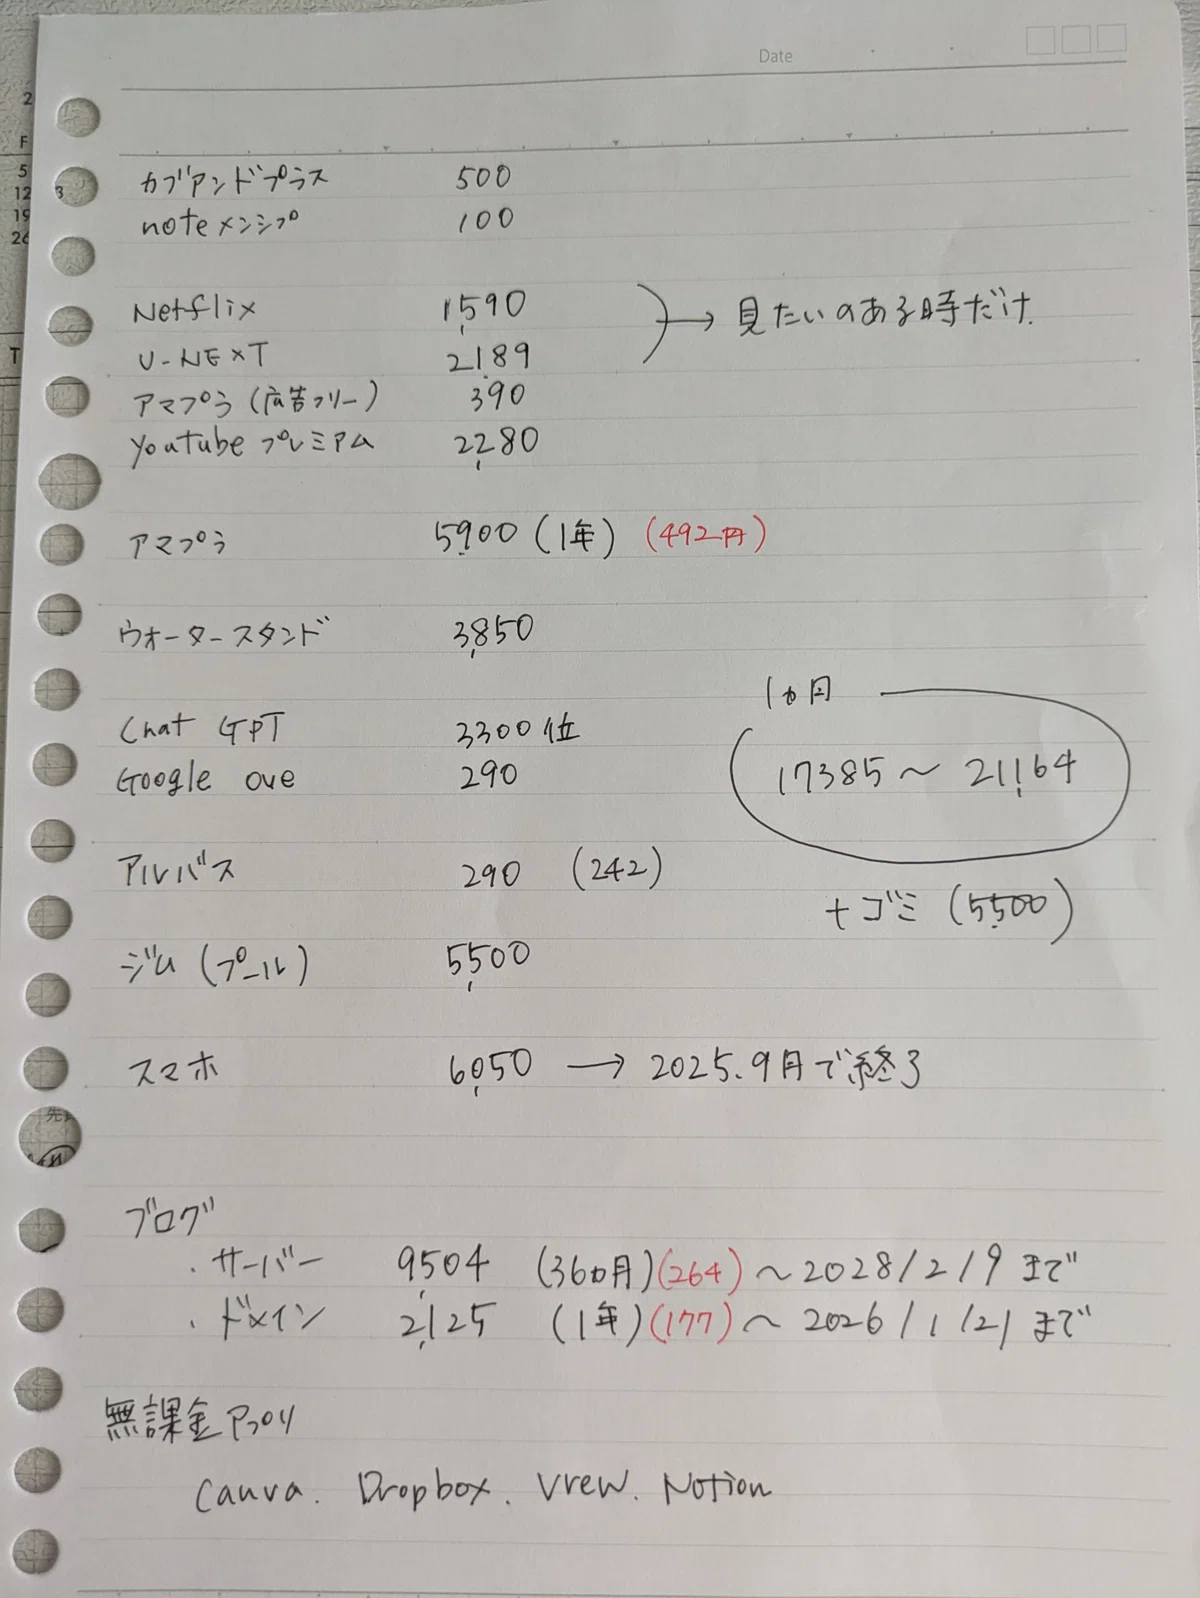 Date
カブアンドプラス 500
noteメンシプ 100
Netflix 1,590
U-NEXT 2,189
→ 見たいのある時だけ.
アマプラ(広告フリー) 390
Youtubeプレミアム 2,280
アマプラ 5,900 (1年) (492円)
ウォータースタンド 3,850
1ヵ月
Chat GPT 3300位
Google one 290
17385〜21,164
アルバス 290 (242)
+ゴミ (5,500)
ジム(プール) 5,500
スマホ 6,050 → 2025.9月で終了
ブログ
・サーバー 9,504 (36ヵ月)(264)〜2028/2/9まで
・ドメイン 2,125 (1年)(177)〜2026/1/21まで
無課金アプリ
Canva. Dropbox. Vrew. Notion
2
F
5
12
3
19
26
T